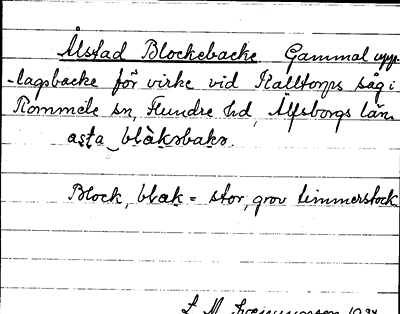 Ålstad Blockebacke Gammal upp-
-lagsbacke för virke vid Källtorps såg i
Rommele sn, Flundre hd, Älfsborgs län.
asta blåksbako.
Block, blåk = stor, grov timmerstock.
L. M.